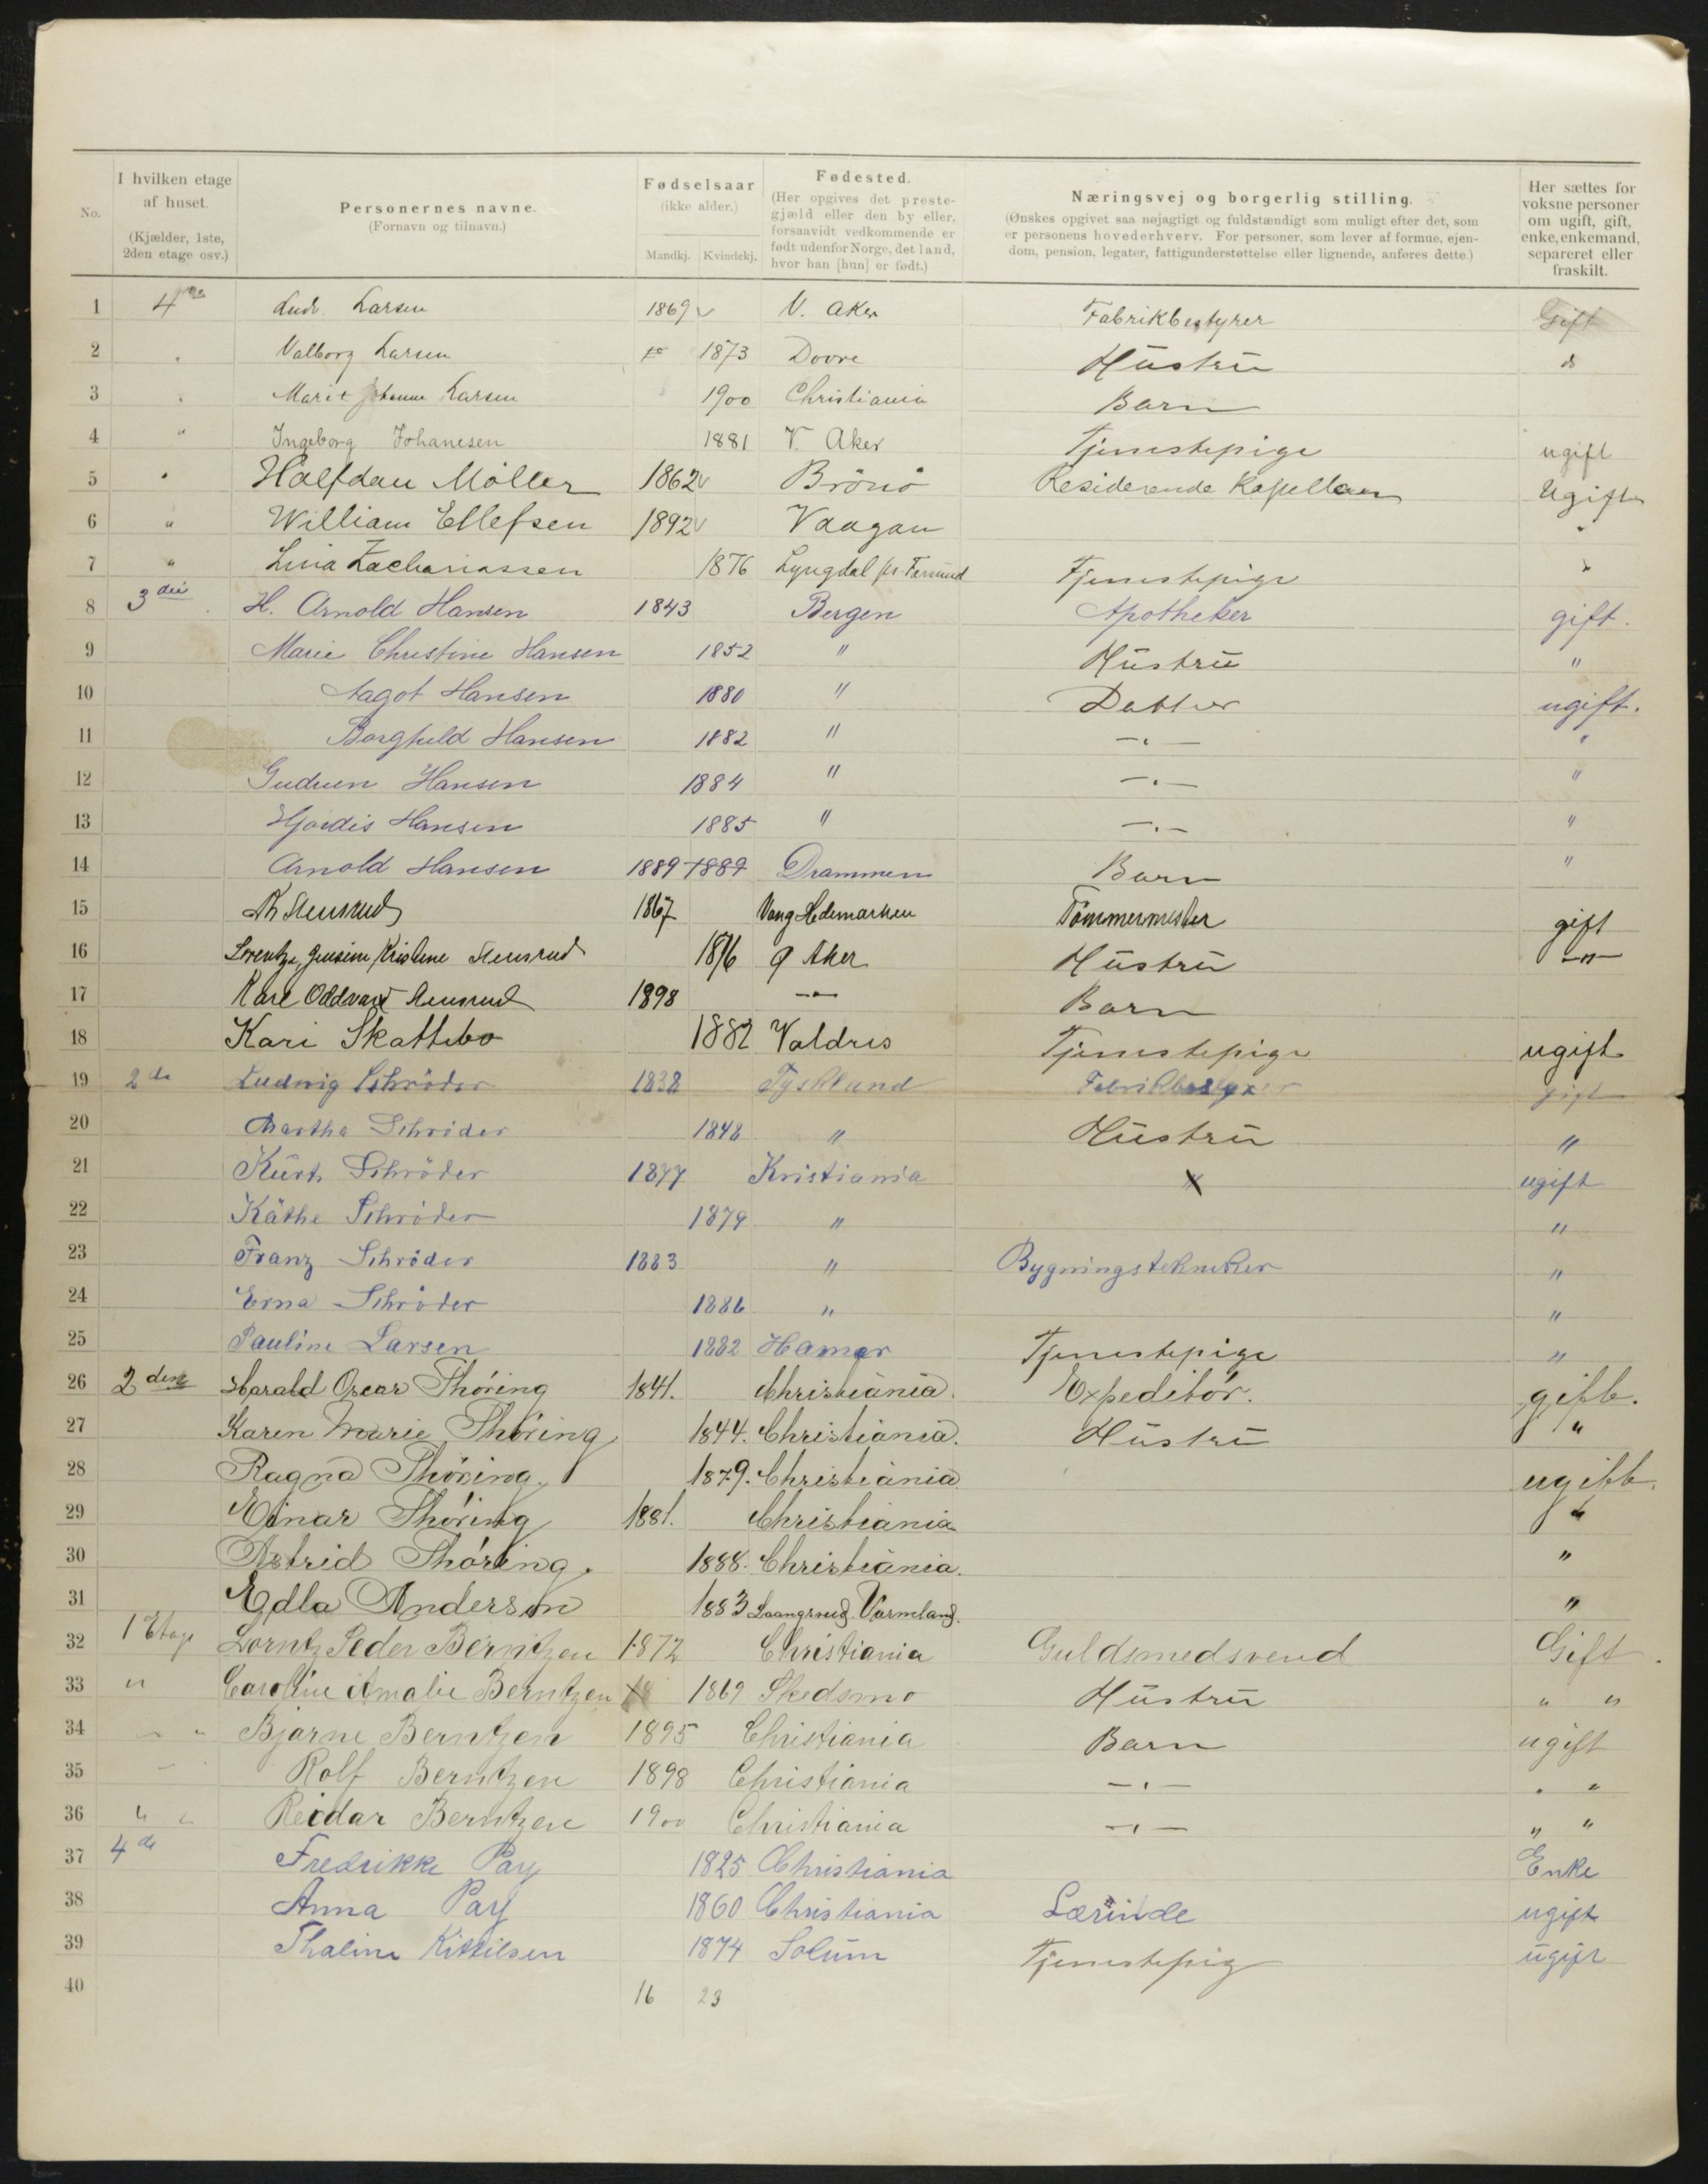 No.
I hvilken etage af huset. (Kjælder, 1ste, 2den etage osv.)
Personernes navne. (Fornavn og tilnavn.)
Fødselsaar (ikke alder.) Mandkj. Kvindekj.
Fødested. (Her opgives det prestegjæld eller den by eller, forsaavidt vedkommende er født udenfor Norge, det land, hvor han [hun] er født.)
Næringsvej og borgerlig stilling. (Ønskes opgivet saa nøjagtigt og fuldstændigt som muligt efter det, som er personens hovederhverv. For personer, som lever af formue, ejendom, pension, legater, fattigunderstøttelse eller lignende, anføres dette.)
Her sættes for voksne personer om ugift, gift, enke, enkemand, separeret eller fraskilt.
1 4 Ludv. Larsen 1869 V. Aker Fabrikbestyrer Gift
2 Valborg Larsen 1873 Dovre Hustru do
3 Marit Johanne Larsen 1900 Christiania Barn
4 " Ingeborg Johanesen 1881 V. Aker Tjenestepige ugift
5 " Halfdan Möller 1862 Brönö Residerende Kapellan Ugift
6 " William Ellefsen 1892 Vaagan "
7 " Lina Zachariassen 1876 Lyngdal pr Farsund Tjenestepige "
8 3die H. Arnold Hansen 1843 Bergen Apotheker gift.
9 Marie Christine Hansen 1852 " Hustru "
10 Aagot Hansen 1880 " Datter ugift.
11 Borghild Hansen 1882 " —"— "
12 Gudrun Hansen 1884 " —"— "
13 Hjördis Hansen 1885 " —"— "
14 Arnold Hansen 1889 1889 Drammen Barn "
15 1867 Vang Hedemarken Tömmermester gift
16 Lorentze Jensine Kristine 1876 Ø Aker Hustru —"—
17 Kåre Oddvard 1898 —"— Barn
18 Kari Skattebo 1882 Valdris Tjenestepige ugift
19 2de Ludwig Schröder 1838 Tyskland Fabrikbestyrer gift
20 Martha Schröder 1848 " Hustru "
21 Kurt Schröder 1877 Kristiania ugift
22 Käthe Schröder 1879 " "
23 Franz Schröder 1883 " Bygningstekniker "
24 Erna Schröder 1886 " "
25 Pauline Larsen 1882 Hamar Tjenestepige "
26 2den Harald Oscar Thöring 1841. Christiania. Expeditör. gift.
27 Karen Marie Thöring 1844. Christiania. Hustru "
28 Ragna Thöring. 1879. Christiania ugift.
29 Einar Thöring 1881. Christiania "
30 Astrid Thöring. 1888. Christiania. "
31 Edla Anderson 1883 Varmland. "
32 1 Etage Lorntz Peder Berntzen 1872 Christiania Guldsmedsvend Gift.
33 " Caroline Amalie Berntzen 1869 Skedsmo Hustru " "
34 " Bjarne Berntzen 1895 Christiania Barn ugift
35 Rolf Berntzen 1898 Christiania —"— " "
36 " " Reidar Berntzen 1900 Christiania —"— " "
37 4de Fredrikke Pay 1825 Christiania Enke
38 Anna Pay 1860 Christiania Lærinde ugift
39 Thaline Kittilsen 1874 Solum Tjenestepig ugift
40 16 23